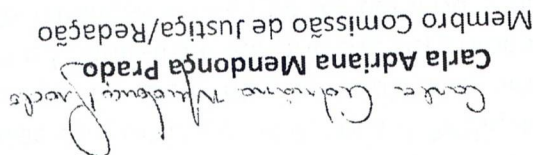 Carla Adriana Mendonça Prado
Carla Adriana Mendonça Prado
Membro Comissão de Justiça/Redação